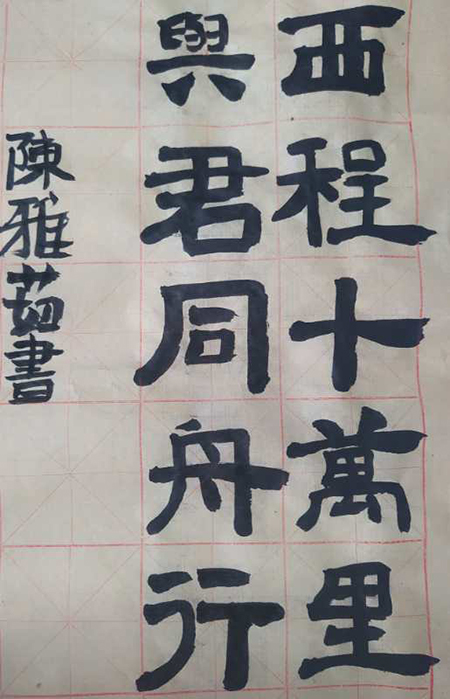 西程十萬里
與君同舟行
陳雅茹書